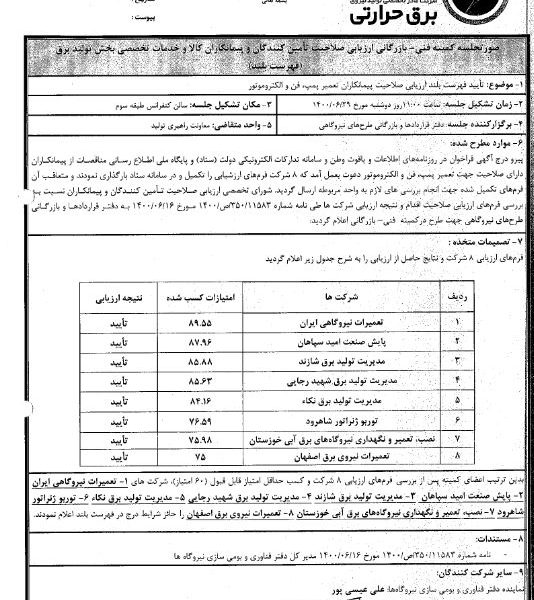 شرکت مادر تخصصی تولید نیروی
برق حرارتی
پیوست :
صورتجلسه کمیته فنی- بازرگانی ارزیابی صلاحیت تأمین کنندگان و پیمانکاران کالا و خدمات تخصصی بخش تولید برق
(فهرست بلند)
۱- موضوع: تأیید فهرست بلند ارزیابی صلاحیت پیمانکاران تعمیر پمپ، فن و الکتروموتور
۲- زمان تشکیل جلسه: ساعت ۱۱:۰۰ روز دوشنبه مورخ ۱۴۰۰/۰۶/۲۹
۳- مکان تشکیل جلسه: سالن کنفرانس طبقه سوم
۴- برگزارکننده جلسه: دفتر قراردادها و بازرگانی طرح‌های نیروگاهی
۵- واحد متقاضی: معاونت راهبری تولید
۶- موارد مطرح شده:
پیرو درج آگهی فراخوان در روزنامه‌های اطلاعات و یاقوت وطن و سامانه تدارکات الکترونیکی دولت (ستاد) و پایگاه ملی اطلاع رسانی مناقصات از پیمانکاران
دارای صلاحیت جهت تعمیر پمپ، فن و الکتروموتور دعوت بعمل آمد که ۸ شرکت فرم‌های ارزشیابی را تکمیل و در سامانه ستاد بارگذاری نمودند و متعاقب آن
فرم‌های تکمیل شده جهت انجام بررسی های لازم به واحد مربوطه ارسال گردید. شورای تخصصی ارزیابی صلاحیت تأمین کنندگان و پیمانکاران نسبت به
بررسی فرم‌های ارزیابی صلاحیت اقدام و نتیجه ارزیابی شرکت ها طی نامه شماره ۳۵۰/۱۱۵۸۳/ص/۱۴۰۰ مورخ ۱۴۰۰/۰۶/۱۶ به دفتر قراردادها و بازرگانی
طرح‌های نیروگاهی جهت طرح درکمیته فنی- بازرگانی اعلام گردید.
۷- تصمیمات متخذه :
فرم‌های ارزیابی ۸ شرکت و نتایج حاصل از ارزیابی را به شرح جدول زیر اعلام گردید
ردیف شرکت ها امتیازات کسب شده نتیجه ارزیابی
۱ تعمیرات نیروگاهی ایران ۸۹.۵۵ تأیید
۲ پایش صنعت امید سپاهان ۸۷.۹۶ تأیید
۳ مدیریت تولید برق شازند ۸۵.۸۸ تأیید
۴ مدیریت تولید برق شهید رجایی ۸۵.۶۳ تأیید
۵ مدیریت تولید برق نکاء ۸۴.۱۶ تأیید
۶ توربو ژنراتور شاهرود ۷۶.۵۹ تأیید
۷ نصب، تعمیر و نگهداری نیروگاه‌های برق آبی خوزستان ۷۵.۹۸ تأیید
۸ تعمیرات نیروی برق اصفهان ۷۵ تأیید
بدین ترتیب اعضای کمیته پس از بررسی فرم‌های ارزیابی ۸ شرکت و کسب حداقل امتیاز قابل قبول (۶۰ امتیاز)، شرکت های ۱- تعمیرات نیروگاهی ایران
۲- پایش صنعت امید سپاهان ۳- مدیریت تولید برق شازند ۴- مدیریت تولید برق شهید رجایی ۵- مدیریت تولید برق نکاء ۶- توربو ژنراتور
شاهرود ۷- نصب، تعمیر و نگهداری نیروگاه‌های برق آبی خوزستان ۸- تعمیرات نیروی برق اصفهان را حائز شرایط درج در فهرست بلند اعلام نمودند.
۸- مستندات:
- نامه شماره ۳۵۰/۱۱۵۸۳/ص/۱۴۰۰ مورخ ۱۴۰۰/۰۶/۱۶ مدیر کل دفتر فناوری و بومی سازی نیروگاه ها
۹- سایر شرکت کنندگان:
نماینده دفتر فناوری و بومی سازی نیروگاه‌ها: علی عیسی پور